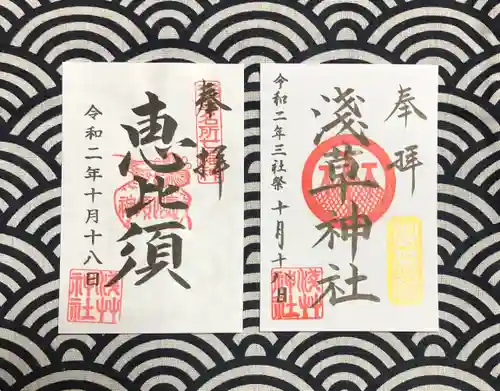 奉拝
恵比須
令和二年十月十八日
浅草神社
奉拝
淺草神社
令和二年三社祭 十月十八日
浅草神社